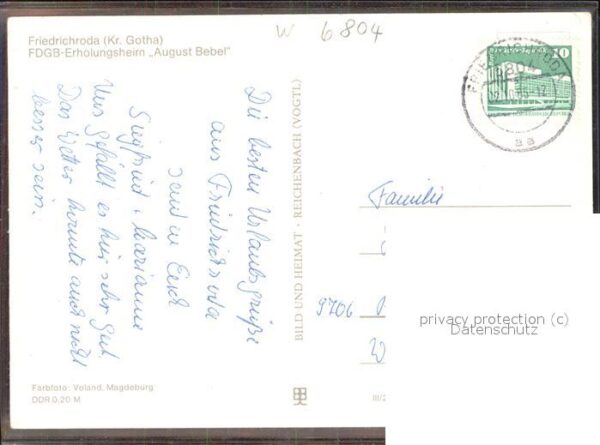 W 6804
Friedrichroda (Kr. Gotha)
FDGB-Erholungsheim „August Bebel"
10
6804
aa
Die besten Urlaubsgrüße
aus Friedrichroda
senden Euch
Siegfried u. Marianne
Uns gefällt es hier sehr gut.
Das Wetter könnte auch nicht
besser sein.
BILD UND HEIMAT · REICHENBACH (VOGTL)
Familie
9706
W
privacy protection (c)
Datenschutz
Farbfoto: Voland, Magdeburg
DDR 0,20 M